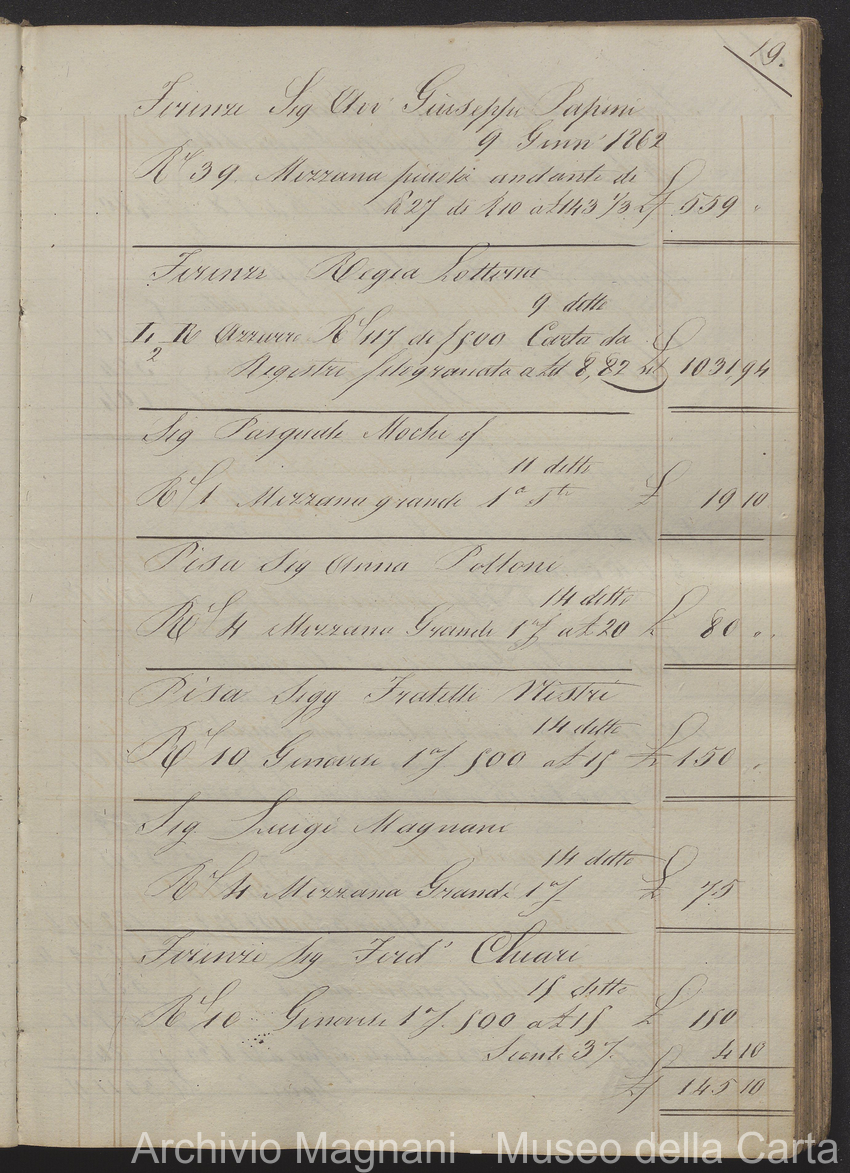 19.
Firenze Sig Avv Giuseppe Papini
9 Genn 1862
Rs 39 Mezzana andante di
K 27 de a £ 14 1/3 £ 559 "
Firenze Regia Lotteria
9 detto
Azzurre Rs 117 de f 500 Carta da
Registri filogranata a £ 8,82 £ 1031 94
Sig Pasquale Mochi
11 detto
Rs 1 Mezzana grande 1a £ 19 10
Pisa Sig Anna Polloni
14 detto
Rs 4 Mezzana Grande 1a a £ 20 £ 80 " "
Pisa Sigg Fratelli Nistri
14 detto
Rs 10 Genovese 1a f 500 a £ 15 £ 150 "
Sig Luigi Magnani
14 detto
Rs 4 Mezzana Grande 1a £ 75
Firenze Sig Ferdo Chiari
15 detto
Rs 10 Genovese 1a f 500 a £ 15 £ 150
Sconto 3% 4 10
£ 145 10
Archivio Magnani - Museo della Carta